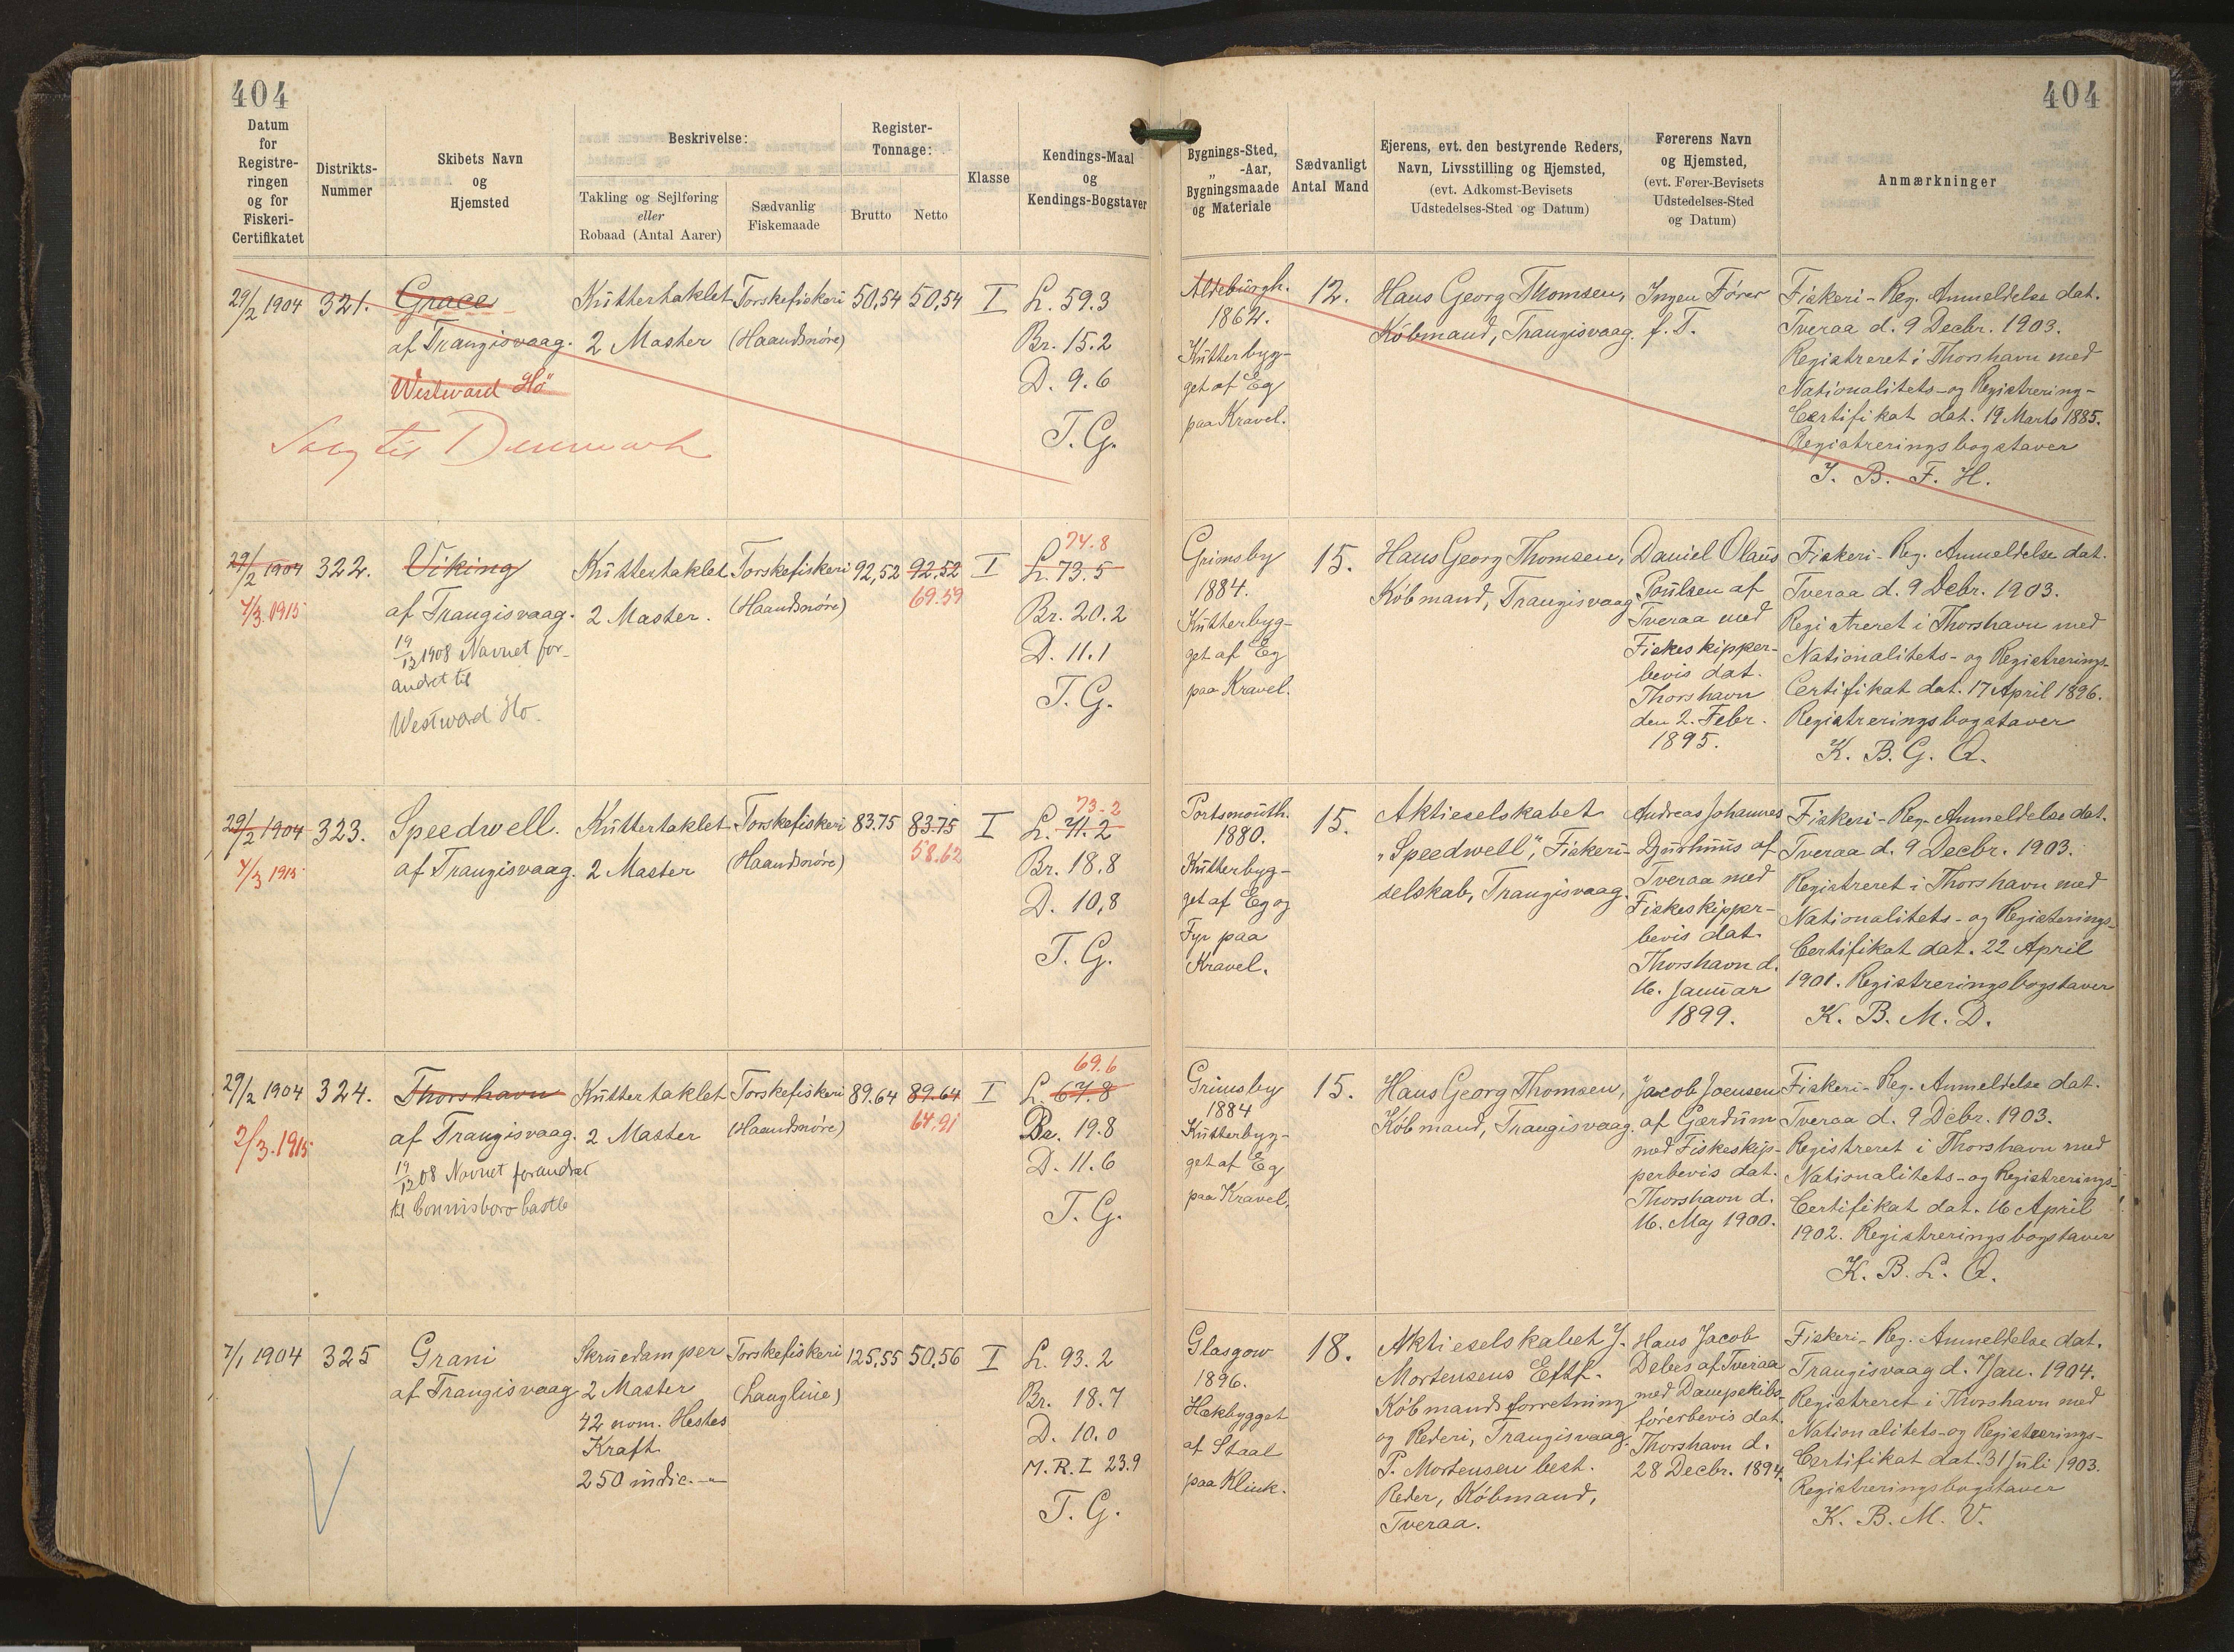 404
404
Datum
for
Registre-
ringen
og for
Fiskeri-
Certifikatet
Distrikts-
Nummer
Skibets Navn
og
Hjemsted
Beskrivelse:
Takling og Sejlføring
eller
Robaad (Antal Aarer)
Sædvanlig
Fiskemaade
Register-
Tonnage:
Brutto
Netto
Klasse
Kendings-Maal
og
Kendings-Bogstaver
Bygnings-Sted,
„ -Aar,
Bygningsmaade
og Materiale
Sædvanligt
Antal Mand
Ejerens, evt. den bestyrende Reders,
Navn, Livsstilling og Hjemsted,
(evt. Adkomst-Bevisets
Udstedelses-Sted og Datum)
Førerens Navn
og Hjemsted,
(evt. Fører-Bevisets
Udstedelses-Sted
og Datum)
Anmærkninger
29/2 1904
321.
Grace
af Trangisvaag.
Westward Ho"
Solg til Danmark
Kuttertaklet
2 Master
Torskefiskeri
(Haandsnøre)
50,54
50,54
I
L. 59.3
Br. 15.2
D. 9.6
T. G.
Aldeburgh.
1862.
Kutterbyg-
get af Eg
paa Kravel.
12.
Hans Georg Thomsen,
Købmand, Trangisvaag.
Ingen Fører
f. T.
Fiskeri-Reg. Anmeldelse dat.
Tveraa d. 9 Decbr. 1903.
Registreret i Thorshavn med
Nationalitets- og Registrering-
Certifikat dat. 19 Marts 1885.
Registreringsbogstaver
J. B. F. H.
29/2 1904
7/3.1915
322.
Viking
af Trangisvaag.
19/12 1908 Navnet for-
andret til
Westward Ho.
Kuttertaklet
2 Master.
Torskefiskeri
(Haandsnøre)
92,52
92,52
69.59
I
74.8
L. 73.5
Br. 20.2
D. 11.1
T. G.
Grimsby
1884.
Kutterbyg-
get af Eg
paa Kravel.
15.
Hans Georg Thomsen,
Købmand, Trangisvaag
Daniel Olaus
Poulsen af
Tveraa med
Fiskeskipper-
bevis dat.
Thorshavn
den 2. Febr.
1895.
Fiskeri-Reg. Anmeldelse dat.
Tveraa d. 9 Debr. 1903.
Registreret i Thorshavn med
Nationalitets- og Registrerings-
Certifikat dat. 17 April 1896.
Registreringsbogstaver
K. B. G. Q.
29/2 1904
7/3 1915
323.
Speedwell.
af Trangisvaag.
Kuttertaklet
2 Master
Torskefiskeri
(Haandsnøre)
83.75
83.75
58.62
I
73.2
L. 71.2
Br. 18.8
D. 10,8
T. G.
Portsmouth.
1880.
Kutterbyg-
get af Eg og
Fyr paa
Kravel.
15.
Aktieselskabet
„Speedwell", Fiskeri-
selskab, Trangisvaag.
Andreas Johannes
Djurhuus af
Tveraa med
Fiskeskipper-
bevis dat.
Thorshavn d.
16. Januar
1899.
Fiskeri-Reg. Anmeldelse dat.
Tveraa d. 9 Decbr. 1903.
Registreret i Thorshavn med
Nationalitets- og Registerings-
Certifikat dat. 22 April
1901. Registreringsbogstaver
K. B. M. D.
29/2 1904
2/3.1915
324.
Thorshavn
af Trangisvaag.
19/12 08 Navnet forandret
til Connisboro Castle
Kuttertaklet
2 Master
Torskefiskeri
(Haandsnøre)
89.64
89.64
64.91
I
69.6
L. 67.8
Br. 19.8
D. 11.6
T. G.
Grimsby
1884
Kutterbyg-
get af Eg
paa Kravel,
15.
Hans Georg Thomsen,
Købmand, Trangisvaag.
Jacob Joensen
af Gærdum
med Fiskeskip-
perbevis dat.
Thorshavn d.
16. Maj 1900.
Fiskeri-Reg. Anmeldelse dat.
Tveraa d. 9 Debr. 1903.
Registreret i Thorshavn med
Nationalitets- og Registrerings-
Certifikat dat. 16 April
1902. Registreringsbogstaver
K. B. L. Q.
7/1 1904
325
Grani
af Trangisvaag
Skruedamper
2 Master
42 nom. Hestes
Kraft
250 indic. —"—
Torskefiskeri
(Langline)
125,55
50,56
I
L. 93.2
Br. 18.7
D. 10.0
M.R.L 23.9
T. G.
Glasgow
1896.
Hækbygget
af Staal
paa Klink.
18.
Aktieselskabet J.
Mortensens Eftf.
Købmandsforretning
og Rederi, Trangisvaag.
P. Mortensen best.
Reder, Købmand,
Tveraa.
Hans Jacob
Debes af Tveraa
med Dampskibs-
førerbevis dat.
Thorshavn d.
28 Decbr. 1894.
Fiskeri-Reg. Anmeldelse dat.
Trangisvaag d. 7 Jan. 1904.
Registreret i Thorshavn med
Nationalitets- og Registrerings-
Certifikat dat. 31 Juli 1903.
Registreringsbogstaver
K. B. M. V.